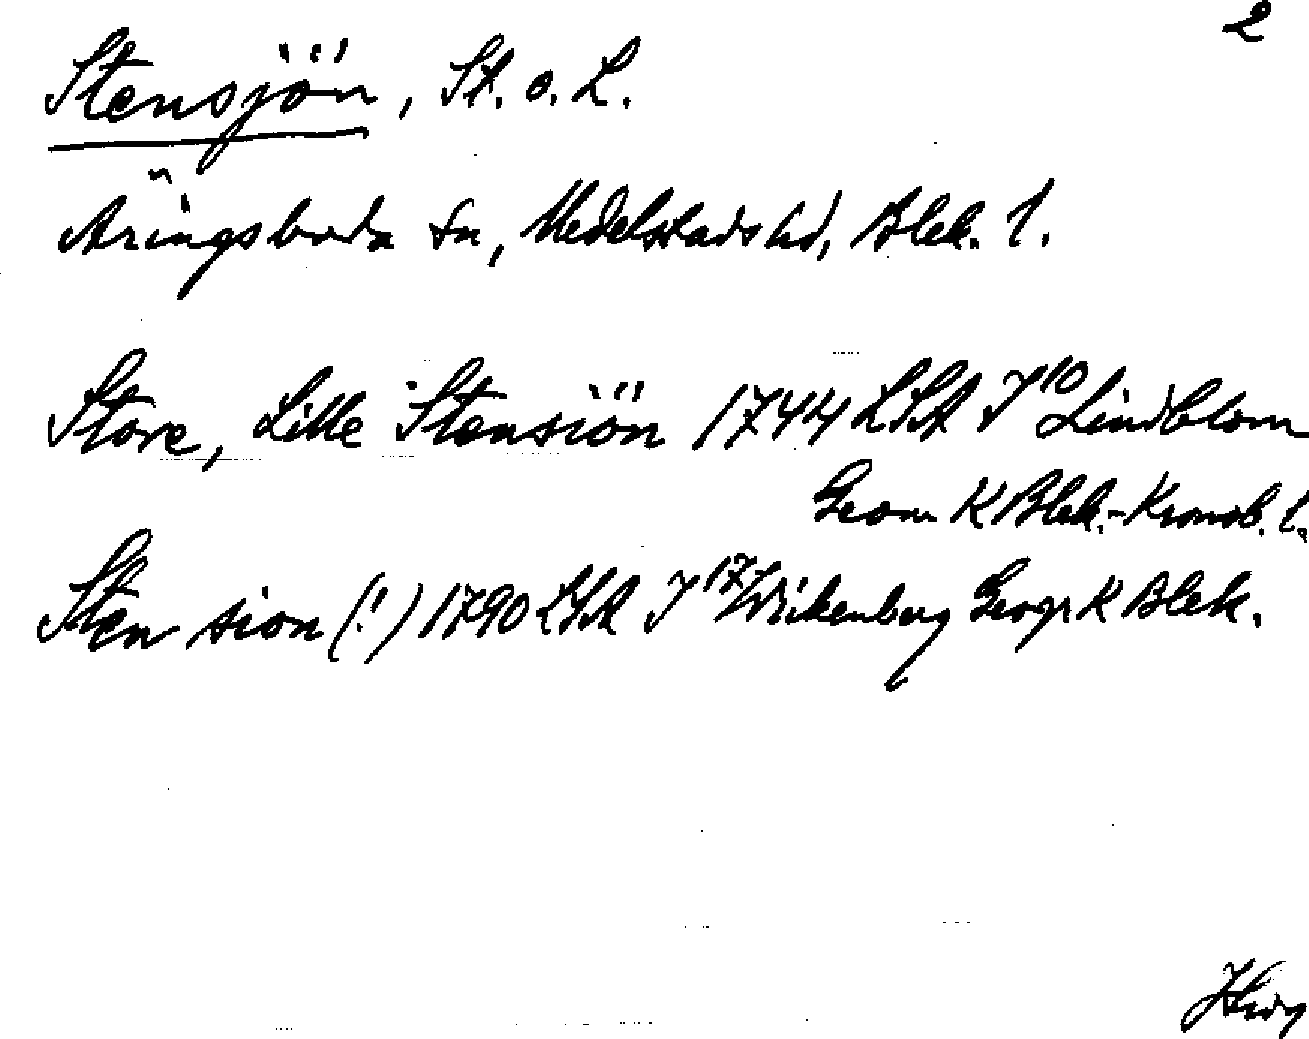 2
Stensjön, St. o. L.
Äringsboda sn, Medelstads hd, Blek. l.
Store, Lille Stensiön 1744 LSA J10 Lindblom
Geom K Blek.-Kronob. l.
Sten sion (!) 1790 LSA J17 Wirkenberg Geogr K Blek.